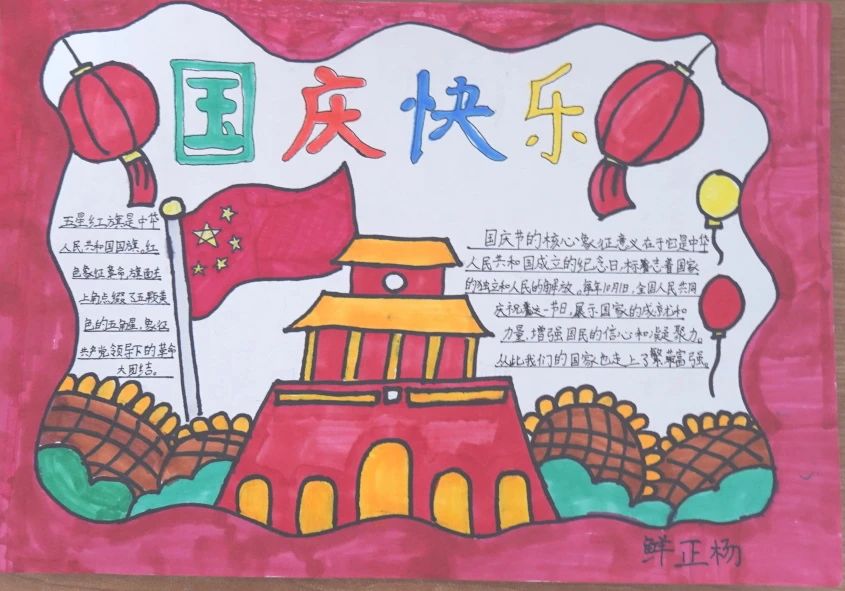 国庆快乐
五星红旗是中华
人民共和国国旗。红
色象征革命,旗面左
上角点缀了五颗黄
色的五角星,象征
共产党领导下的革命
大团结。
国庆节的核心象征意义在于它是中华
人民共和国成立的纪念日,标志着国家
的独立和人民的解放。每年10月1日,全国人民共同
庆祝着这一节日,展示国家的成就和
力量,增强国民的信心和凝聚力。
从此我们的国家也走上了繁荣富强。
鲜正杨